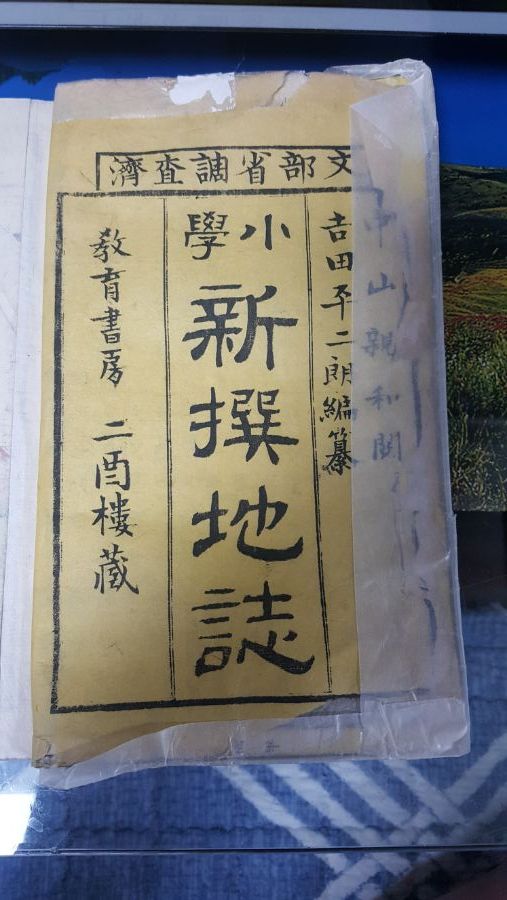 文部省調査濟
吉田平二朗編纂
小學
新撰地誌
敎育書房 二酉樓藏
山親和